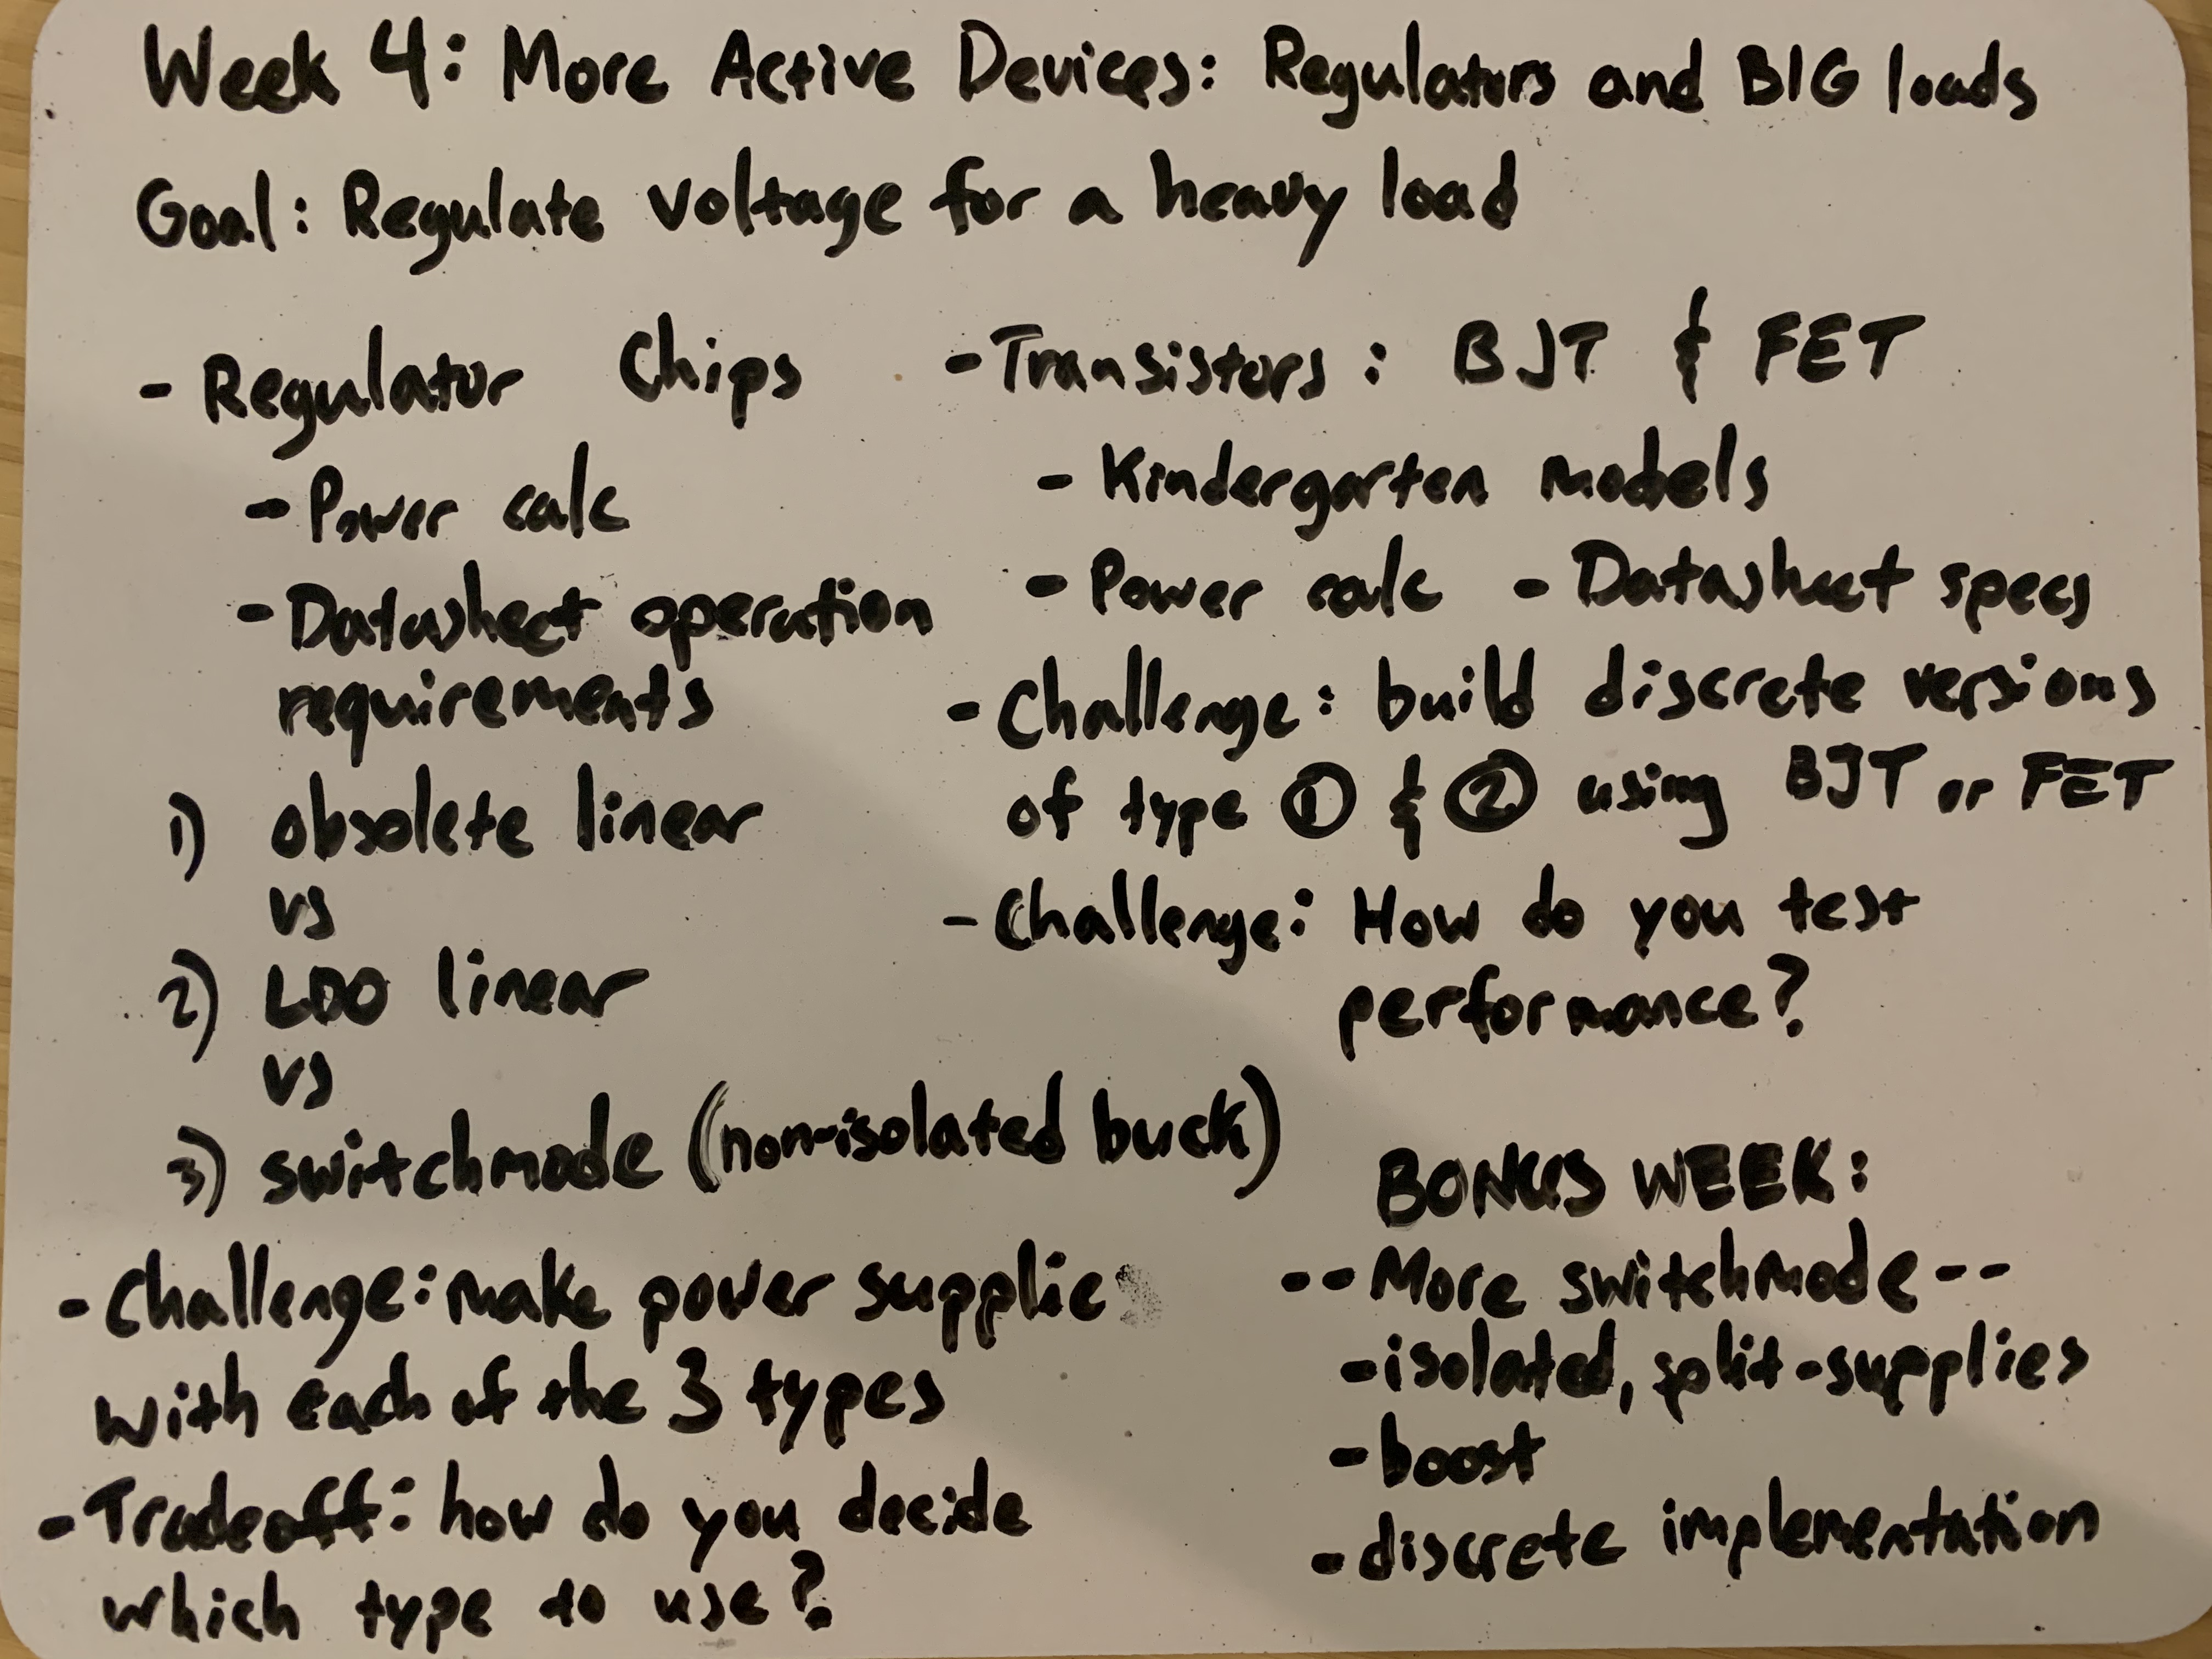 Week 4: More Active Devices: Regulators and BIG loads
Goal: Regulate voltage for a heavy load
- Regulator Chips
- Power calc
- Datasheet operation
requirements
1) obsolete linear
vs
2) LDO linear
vs
3) switchmode (non-isolated buck)
- Challenge: make power supplie
with each of the 3 types
- Tradeoff: how do you decide
which type to use?
- Transistors: BJT & FET
- Kindergarten models
- Power calc - Datasheet specs
- Challenge: build discrete versions
of type ① & ② using BJT or FET
- Challenge: How do you test
performance?
BONUS WEEK:
-- More switchmode --
- isolated, split-supplies
- boost
- discrete implementation